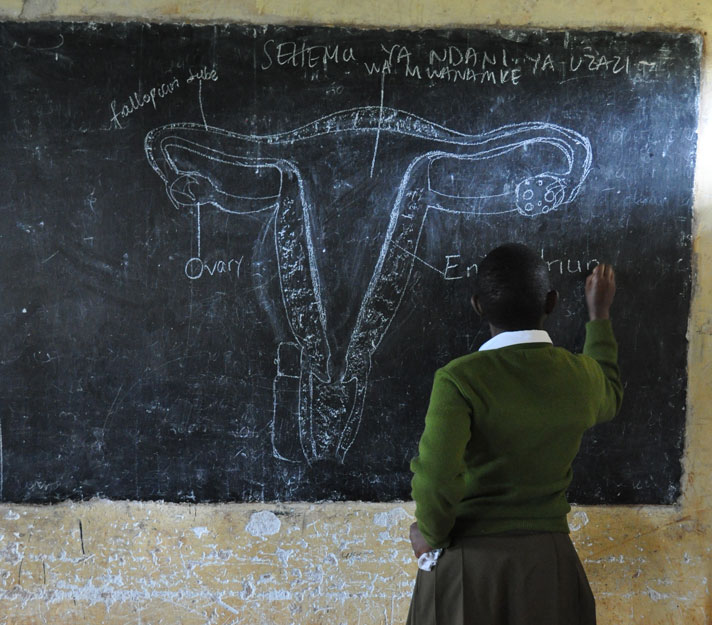 SEHEMU YA NDANI YA UZAZI
WA MWANAMKE
fallopian tube
Ovary